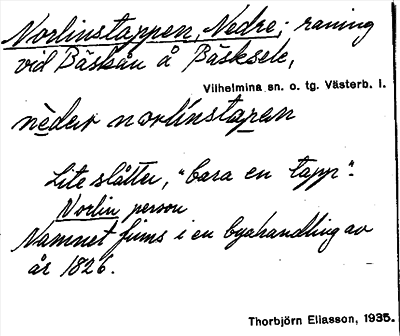 Norlinstappen, Nedre; raning
vid Bäskån å Bäsksele,
Vilhelmina sn. o. tg. Västerb. l.
nèdur norlínstapen
Lite slåtter, "bara en tapp".
Norlin person
Namnet finns i en byahandling av
år 1826.
Thorbjörn Eliasson, 1935.